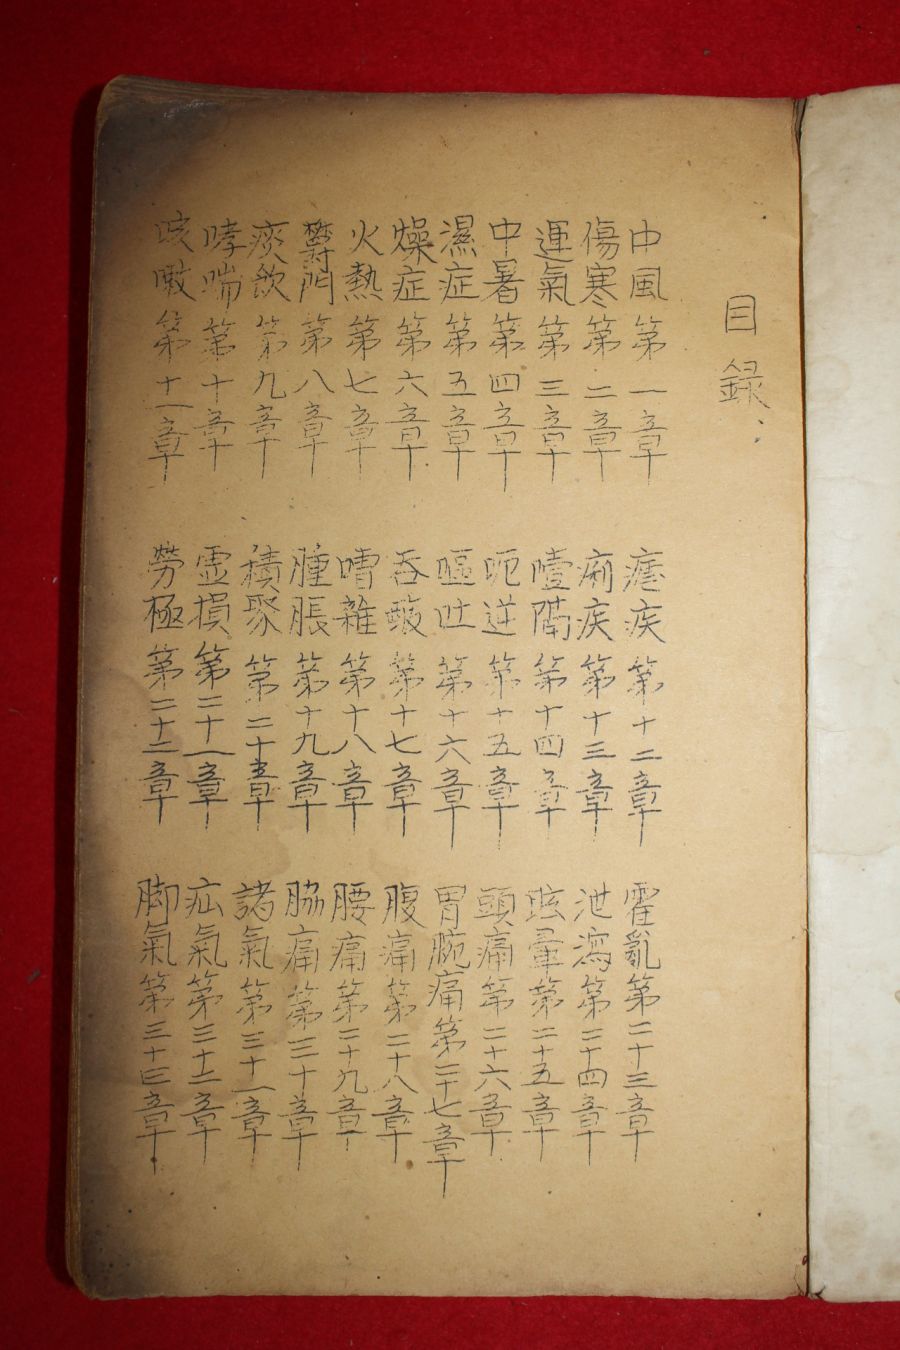 目錄
中風第一章
傷寒第二章
運氣第三章
中暑第四章
濕症第五章
燥症第六章
火熱第七章
欝門第八章
痰飲第九章
哮喘第十章
咳嗽第十一章
瘧疾第十二章
痢疾第十三章
噎隔第十四章
呃逆第十五章
嘔吐第十六章
吞酸第十七章
嘈雜第十八章
腫脹第十九章
積聚第二十章
虛損第二十一章
勞極第二十二章
霍亂第二十三章
泄瀉第二十四章
眩暈第二十五章
頭痛第二十六章
胃腕痛第二十七章
腹痛第二十八章
腰痛第二十九章
脇痛第三十章
諸氣第三十一章
疝氣第三十二章
脚氣第三十三章